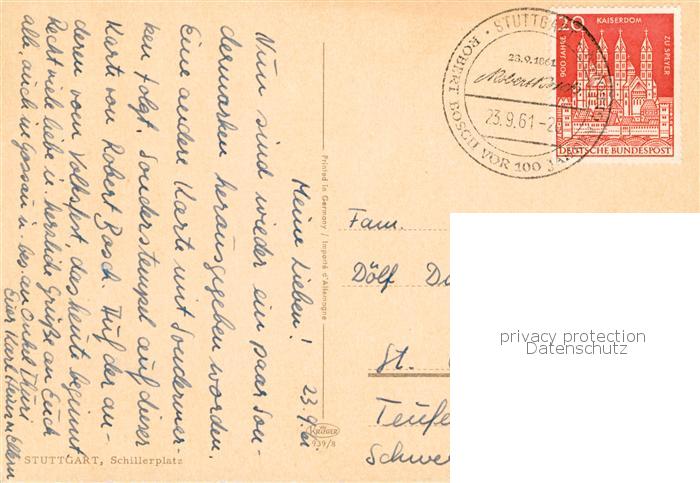 Meine Lieben! 23.9.61
Nun sind wieder ein paar Son-
dermarken herausgegeben worden.
Eine andere Karte mit Sondermar-
ken folgt. Sonderstempel auf dieser
Karte von Robert Bosch. Auf der an-
dern vom Volksfest, das heute beginnt.
Recht viele liebe u. herzliche Grüße an Euch
alle, auch in Gossau u. bes. an Onkel
Euer Karl Heinz u. Eltern
STUTTGART, Schillerplatz
Printed in Germany / Importé d'Allemagne
KRÜGER
939/8
STUTTGA
23.9.1861
Robert Bosch
23.9.61-20
ROBERT BOSCH VOR 100 JA
20 KAISERDOM
900 JAHRE
ZU SPEYER
DEUTSCHE BUNDESPOST
Fam.
Dölf D
St.
Teufe
Schwe
privacy protection
Datenschutz